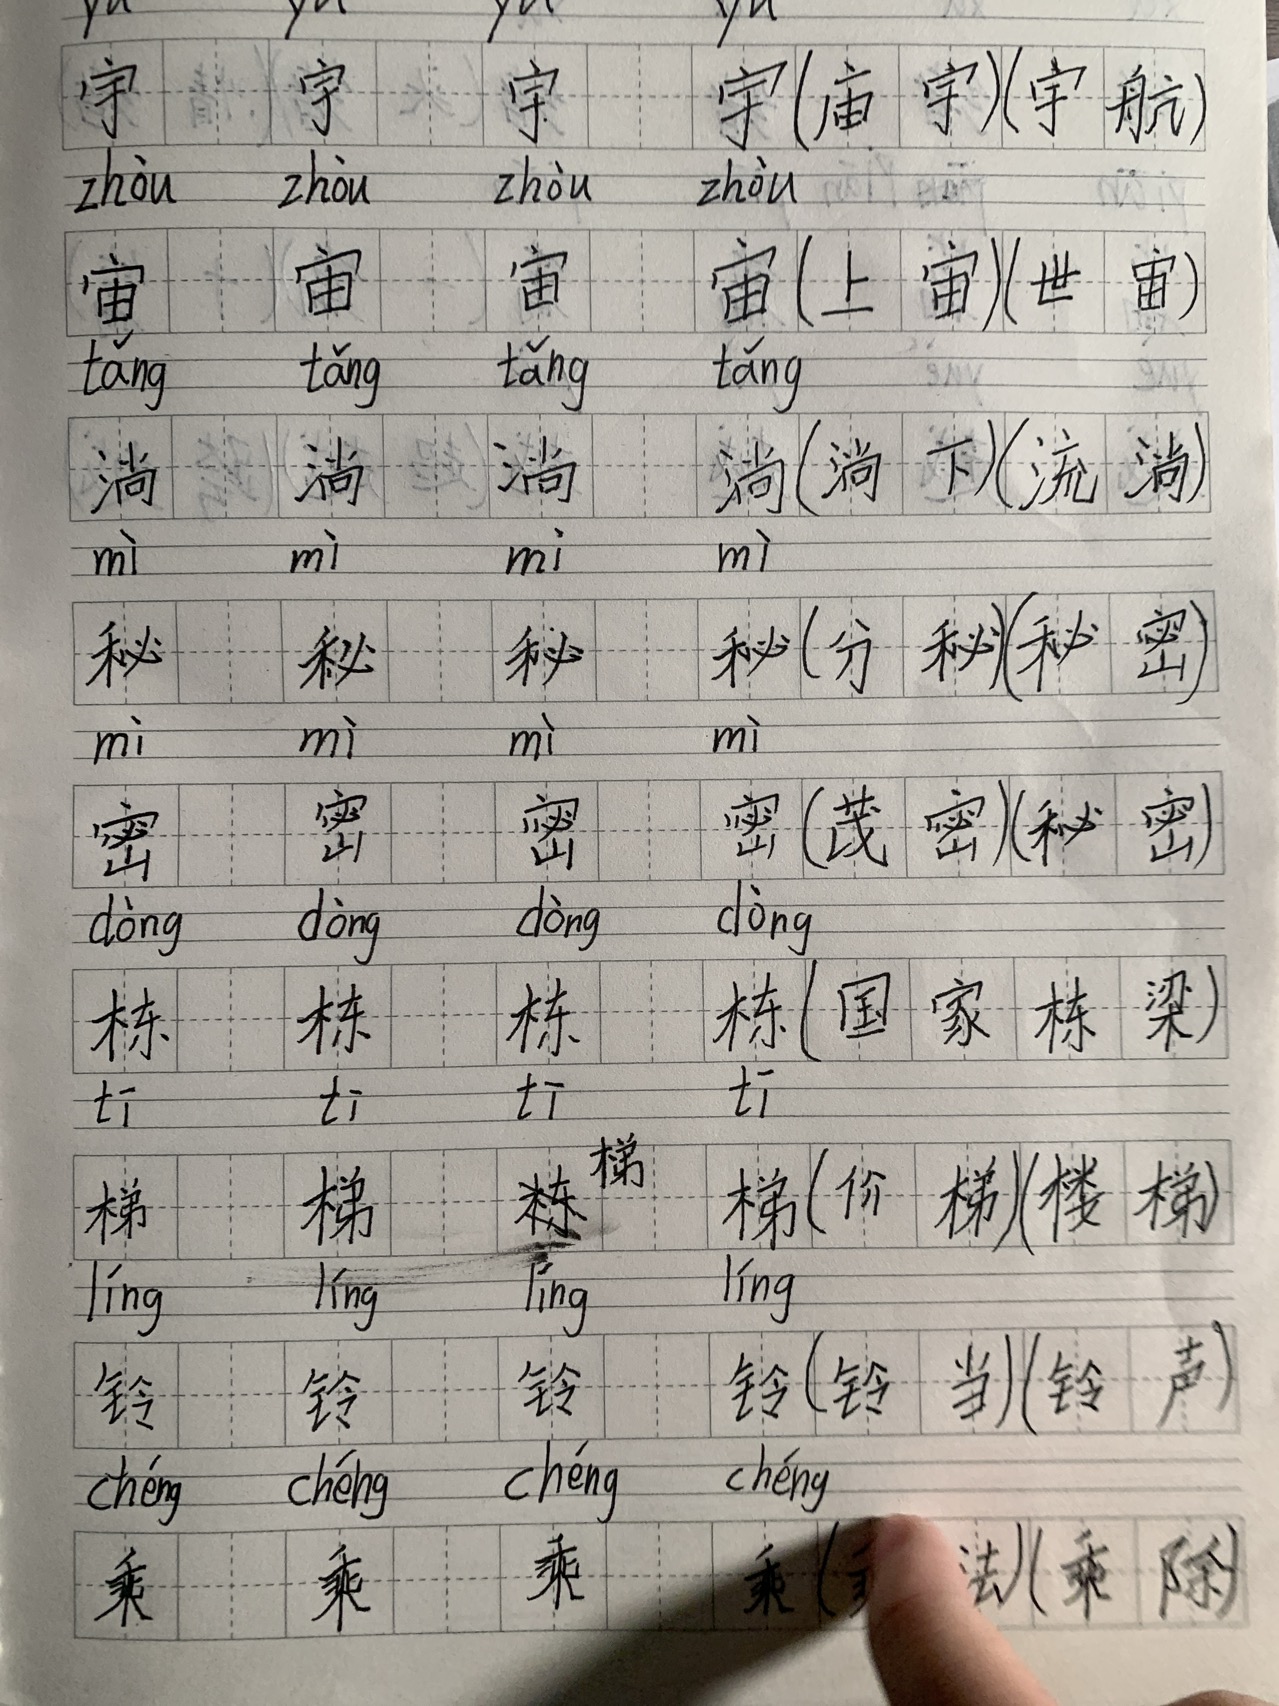 yǔ yǔ yǔ yǔ
宇 宇 宇 宇(庙宇)(宇航)
zhòu zhòu zhòu zhòu
宙 宙 宙 宙(上宙)(世宙)
tǎng tǎng tǎng tǎng
淌 淌 淌 淌(淌下)(流淌)
mì mì mì mì
秘 秘 秘 秘(分秘)(秘密)
mì mì mì mì
密 密 密 密(茂密)(秘密)
dòng dòng dòng dòng
栋 栋 栋 栋(国家栋梁)
tī tī tī tī
梯 梯 梯 梯(价梯)(楼梯)
líng líng líng líng
铃 铃 铃 铃(铃当)(铃声)
chéng chéng chéng chéng
乘 乘 乘 乘(法)(乘除)